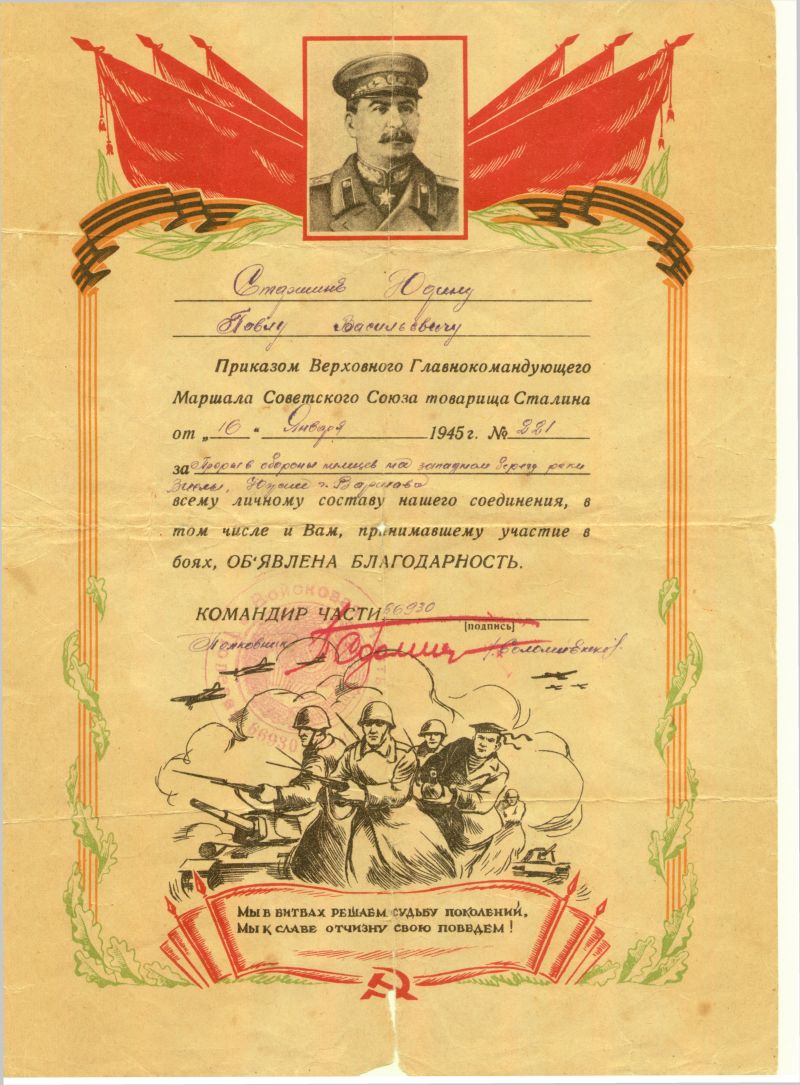 Старшине Юдину
Павлу Васильевичу
Приказом Верховного Главнокомандующего
Маршала Советского Союза товарища Сталина
от „16“ Января 1945 г. № 221
за Прорыв обороны немцев на западном берегу реки
Вислы, Южнее г. Варшава
всему личному составу нашего соединения, в
том числе и Вам, принимавшему участие в
боях, ОБ'ЯВЛЕНА БЛАГОДАРНОСТЬ.
КОМАНДИР ЧАСТИ 66930
[подпись]
Полковник
Войсковая часть
66930
МЫ В БИТВАХ РЕШАЕМ СУДЬБУ ПОКОЛЕНИЙ,
МЫ К СЛАВЕ ОТЧИЗНУ СВОЮ ПОВЕДЕМ!